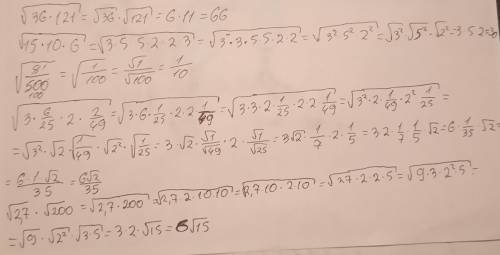 √36·121 = √36 · √121 = 6·11 = 66
√15·10·6 = √3·5 5·2·2·3 = √3·3·5·5·2·2 = √3² 5² 2² = √3² √5² · √2² = 3·5·2 =
√5¹/500 100 = √1/100 = √1/√100 = 1/10
√3·6/25 · 2 · 2/49 = √3·6·1/25 · 2·2 1/49 = √3·3·2·1/25 · 2·2 1/49 = √3²·2·1/49·2² 1/25 =
= √3² · √2 · √1/49 · √2² · √1/25 = 3·√2 · √1/√49 · 2 · √1/√25 = 3√2 · 1/7 · 2 · 1/5 = 3·2·1/7·1/5 √2 = 6·1/35 √2 =
= 6·1√2/35 = 6√2/35
√2,7 · √200 = √2,7·200 = √2,7·2·10·10 = √2,7·10·2·10 = √27·2·2·5 = √9·3·2²·5 =
= √9 · √2² · √3·5 = 3·2·√15 = 6√15